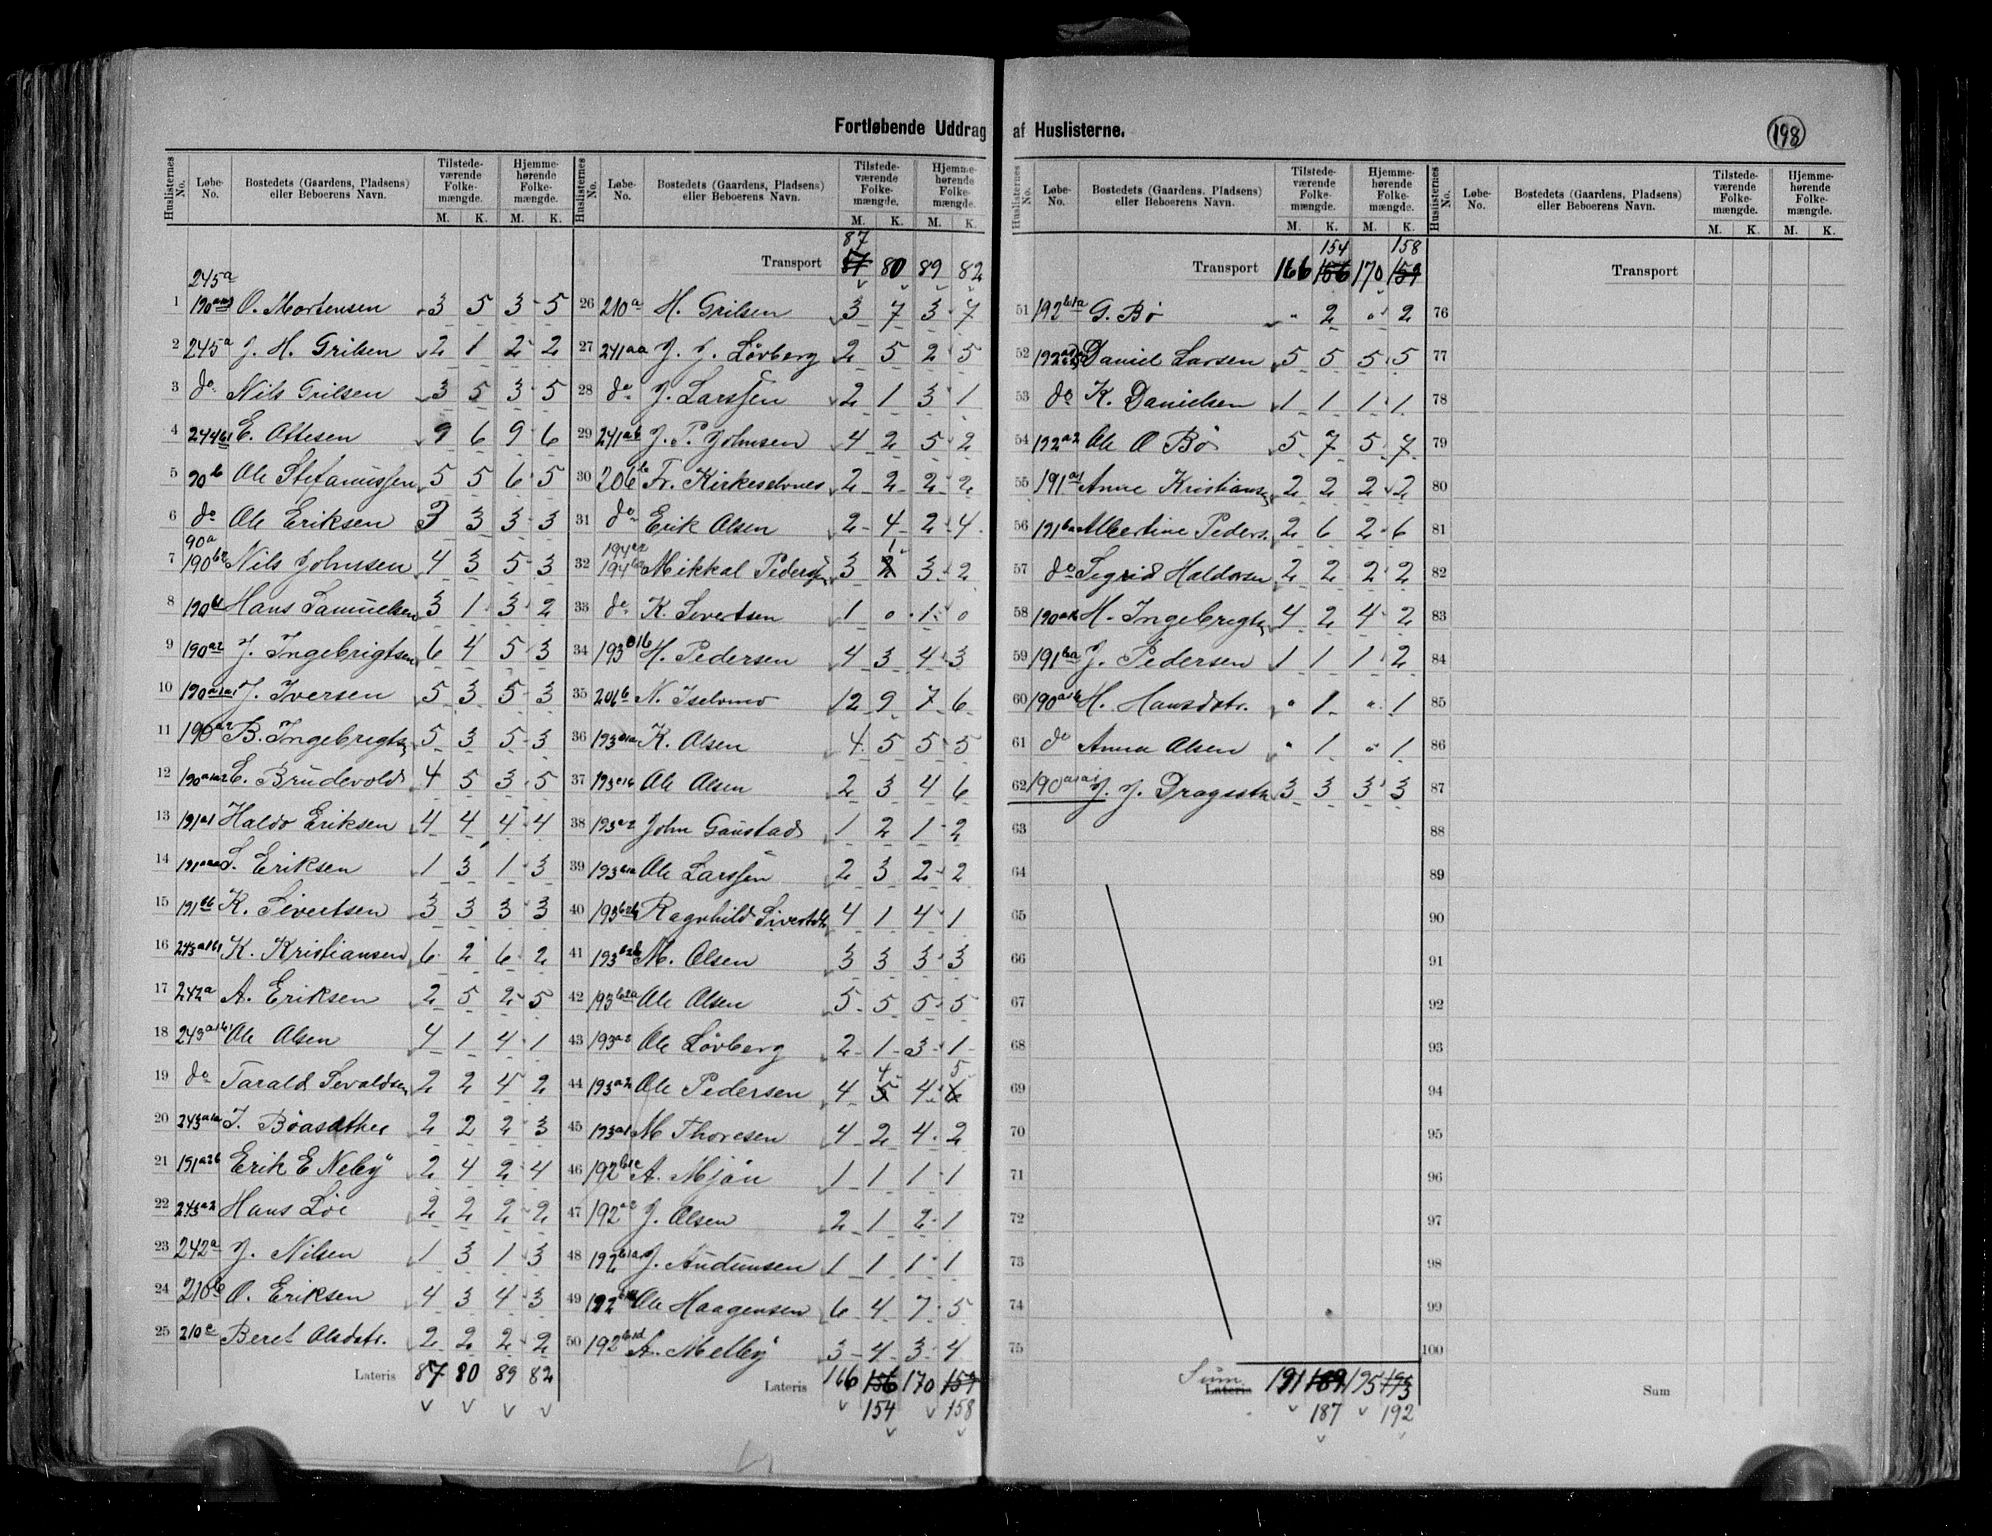 Fortløbende Uddrag af Huslisterne.
198
Huslisternes No. Løbe-No. Bostedets (Gaardens, Pladsens) eller Beboerens Navn. Tilstedeværende Folkemængde. M. K. Hjemmehørende Folkemængde. M. K.
245a
1 O. Mortensen 3 5 3 5
2 245a J. H. Grilsen 2 1 2 2
3 do Nils Grilsen 3 5 3 5
4 244b1 E. Ottesen 9 6 9 6
5 90b Ole Stefanussen 5 5 6 5
6 do Ole Eriksen 3 3 3 3
90a
7 190b2 Nils Johnsen 4 3 5 3
8 190b1 Hans Samuelsen 3 1 3 2
9 190a2 J. Ingebrigtsen 6 4 5 3
10 190a1a1 J. Iversen 5 3 5 3
11 190a2 B. Ingebrigts 5 3 5 3
12 190a1a2 E. Brudevold 4 5 3 5
13 191a1 Haldo Eriksen 4 4 4 4
14 S. Eriksen 1 3 1 3
15 191bb K. Sivertsen 3 3 3 3
16 243a1b1 K. Kristiansen 6 2 6 2
17 242a A. Eriksen 2 5 2 5
18 243a1b1 Ole Olsen 4 1 4 1
19 do Tarald Sevaldsen 2 2 4 2
20 243a1a J. Bøasæther 2 2 2 3
21 191a2b Erik E Neby 2 4 2 4
22 243a2 Hans Løe 2 2 2 2
23 242a J. Nilsen 1 3 1 3
24 210b O. Eriksen 4 3 4 3
25 210c Beret Olsdtr. 2 2 2 2
Lateris 87 80 89 82
Huslisternes No. Løbe-No. Bostedets (Gaardens, Pladsens) eller Beboerens Navn. Tilstedeværende Folkemængde. M. K. Hjemmehørende Folkemængde. M. K.
87
Transport 80 89 82
26 210a H. Grilsen 3 7 3 7
27 241aa J. J. Løvberg 2 5 2 5
28 do J. Larssen 2 1 3 1
29 241ab J. P. Johnsen 4 2 5 2
30 206b Fr. Kirkeselvnes 2 2 2 2
31 do Erik Olsen 2 4 2 4
194a2 1
32 194b2 Mikkal Pedersen 3 2 3 2
33 do K. Sivertsen 1 0 1 0
34 H. Pedersen 4 3 4 3
35 201b N. Iselvmo 12 9 7 6
36 193a1a K. Olsen 4 5 5 5
37 Ole Olsen 2 3 4 6
38 193a2 John Gaustad 1 2 1 2
39 193b1a Ole Larssen 2 3 2 2
40 193b2b Ragnhild Sivertsdtr 4 1 4 1
41 193b2b M. Olsen 3 3 3 3
42 193b2a Ole Olsen 5 5 5 5
43 193a2 Ole Løvberg 2 1 3 1
4 5
44 193a2 Ole Pedersen 4 5 4 6
45 193a1 M Thoresen 4 2 4 2
46 192b1c A. Mjøn 1 1 1 1
47 192a2 J. Olsen 2 1 2 1
48 192b1a J. Audunsen 1 1 1 1
49 Ole Haagensen 6 4 7 5
50 192b1d A. Melby 3 4 3 4
Lateris 166 156 170 159
154 158
Huslisternes No. Løbe-No. Bostedets (Gaardens, Pladsens) eller Beboerens Navn. Tilstedeværende Folkemængde. M. K. Hjemmehørende Folkemængde. M. K.
154 158
Transport 166 156 170 159
51 192b1a G. Bø " 2 " 2
52 Daniel Larsen 5 5 5 5
53 do K. Danielsen 1 1 1 1
54 192a2 Ole O Bø 5 7 5 7
55 191a1 Anne Kristians 2 2 2 2
56 191ba Albertine Peders. 2 6 2 6
57 do Sigrid Haldorsen 2 2 2 2
58 190a2 H. Ingebrigts 4 2 4 2
59 191ba J. Pedersen 1 1 1 2
60 190a1b H. Hansdtr. " 1 " 1
61 do Anna Olsen " 1 " 1
62 190a1a1 J. J. Dragsetn 3 3 3 3
63
64
65
66
67
68
69
70
71
72
73
74
75
Sum Lateris 191 189 195 193
187 192
Huslisternes No. Løbe-No. Bostedets (Gaardens, Pladsens) eller Beboerens Navn. Tilstedeværende Folkemængde. M. K. Hjemmehørende Folkemængde. M. K.
Transport
76
77
78
79
80
81
82
83
84
85
86
87
88
89
90
91
92
93
94
95
96
97
98
99
100
Sum